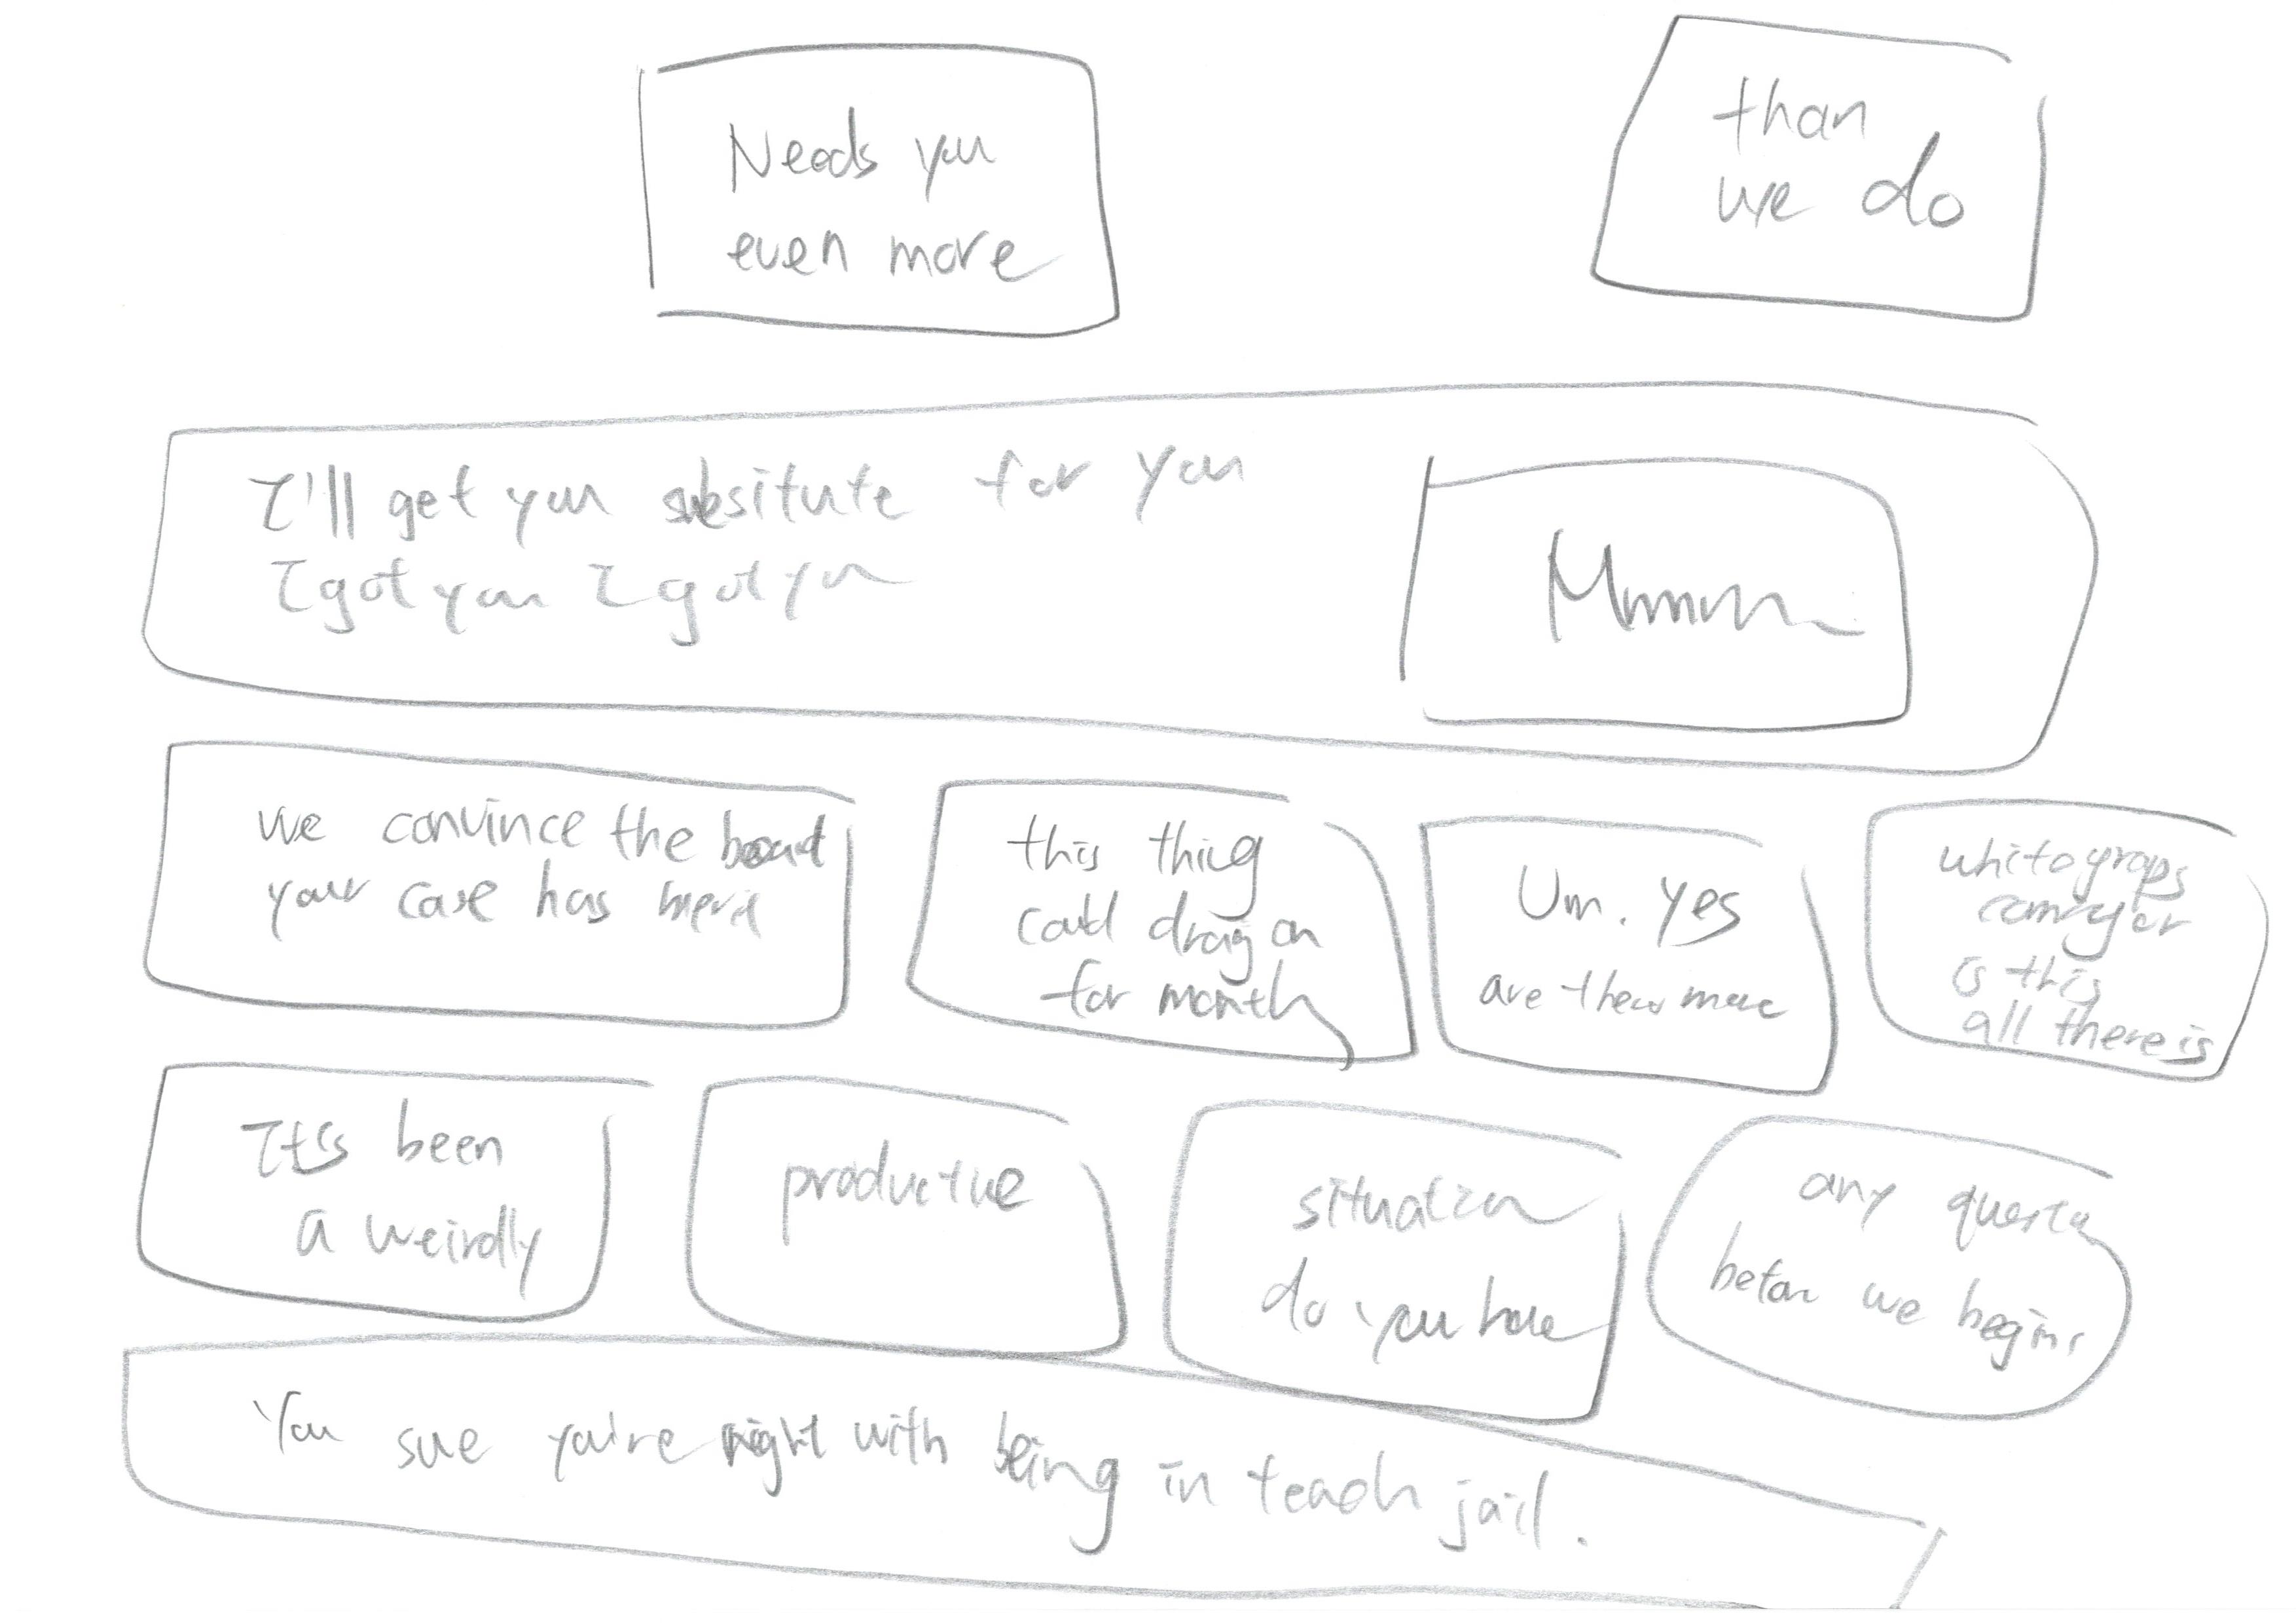 Needs you
even more
than
we do
I'll get you subsitute for you
I got you I got you
Mmmm
we convince the board
your case has merit
this thing
could drag on
for month
Um. yes
are there more
is this
all there is
It's been
a weirdly
productive
situation
do you have
any
before we begin
You sue you're right with being in teach jail.